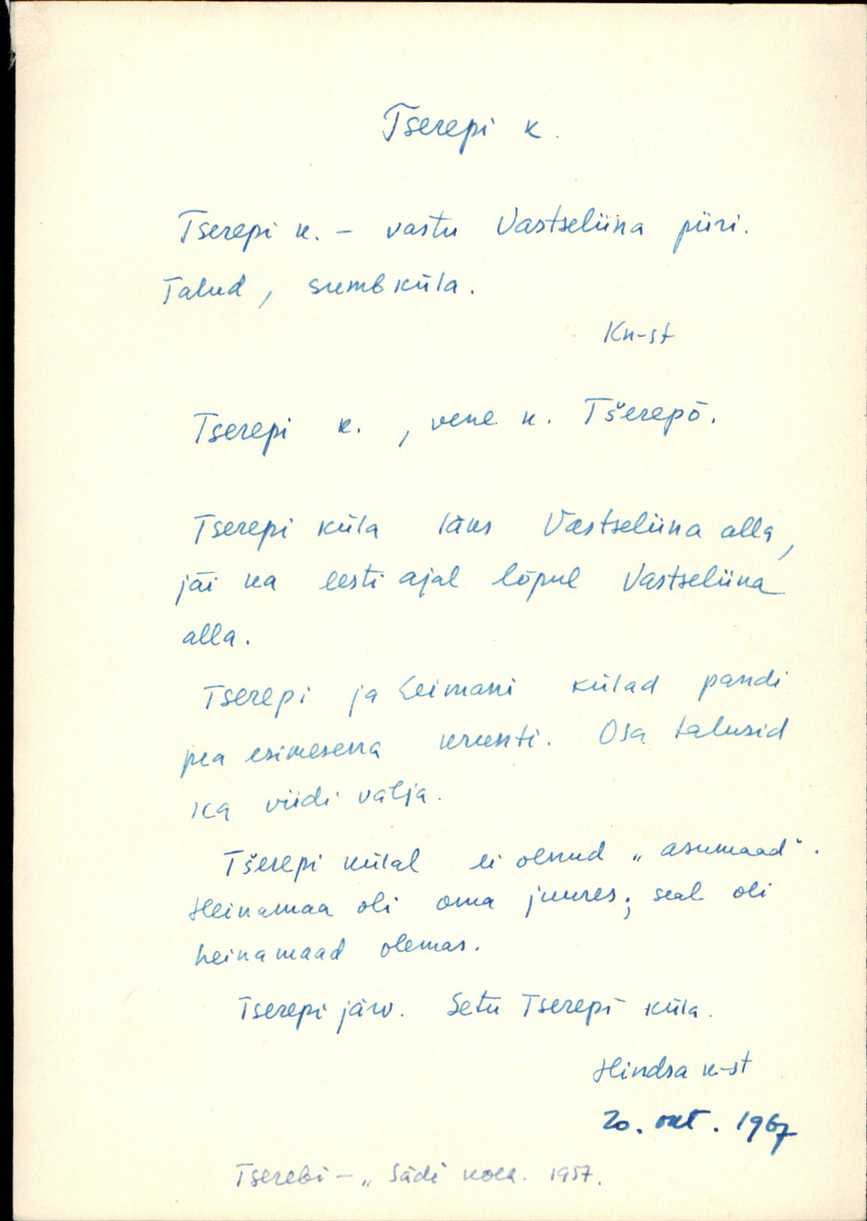 Tserepi k.
Tserepi k. – vastu Vastseliina piiri.
Talud, sumbküla.
Kn-st
Tserepi k., vene k. Tšerepõ.
Tserepi küla läks Vastseliina alla,
jäi ka eesti ajal lõpul Vastseliina
alla.
Tserepi ja Leimani külad pandi
pea esimesena krunti. Osa talusid
ka viidi välja.
Tšerepi külal ei olnud „asumaad".
Heinamaa oli oma juures; seal oli
heinamaad olemas.
Tserepi järv. Setu Tserepi küla.
Hindsa k-st
20. okt. 1967
Tserebi – „ Sädi 1957.